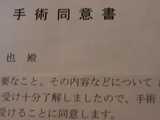 手術同意書
也 殿
要なこと。その内容などについて
受け十分了解しましたので、手術
受けることに同意します。